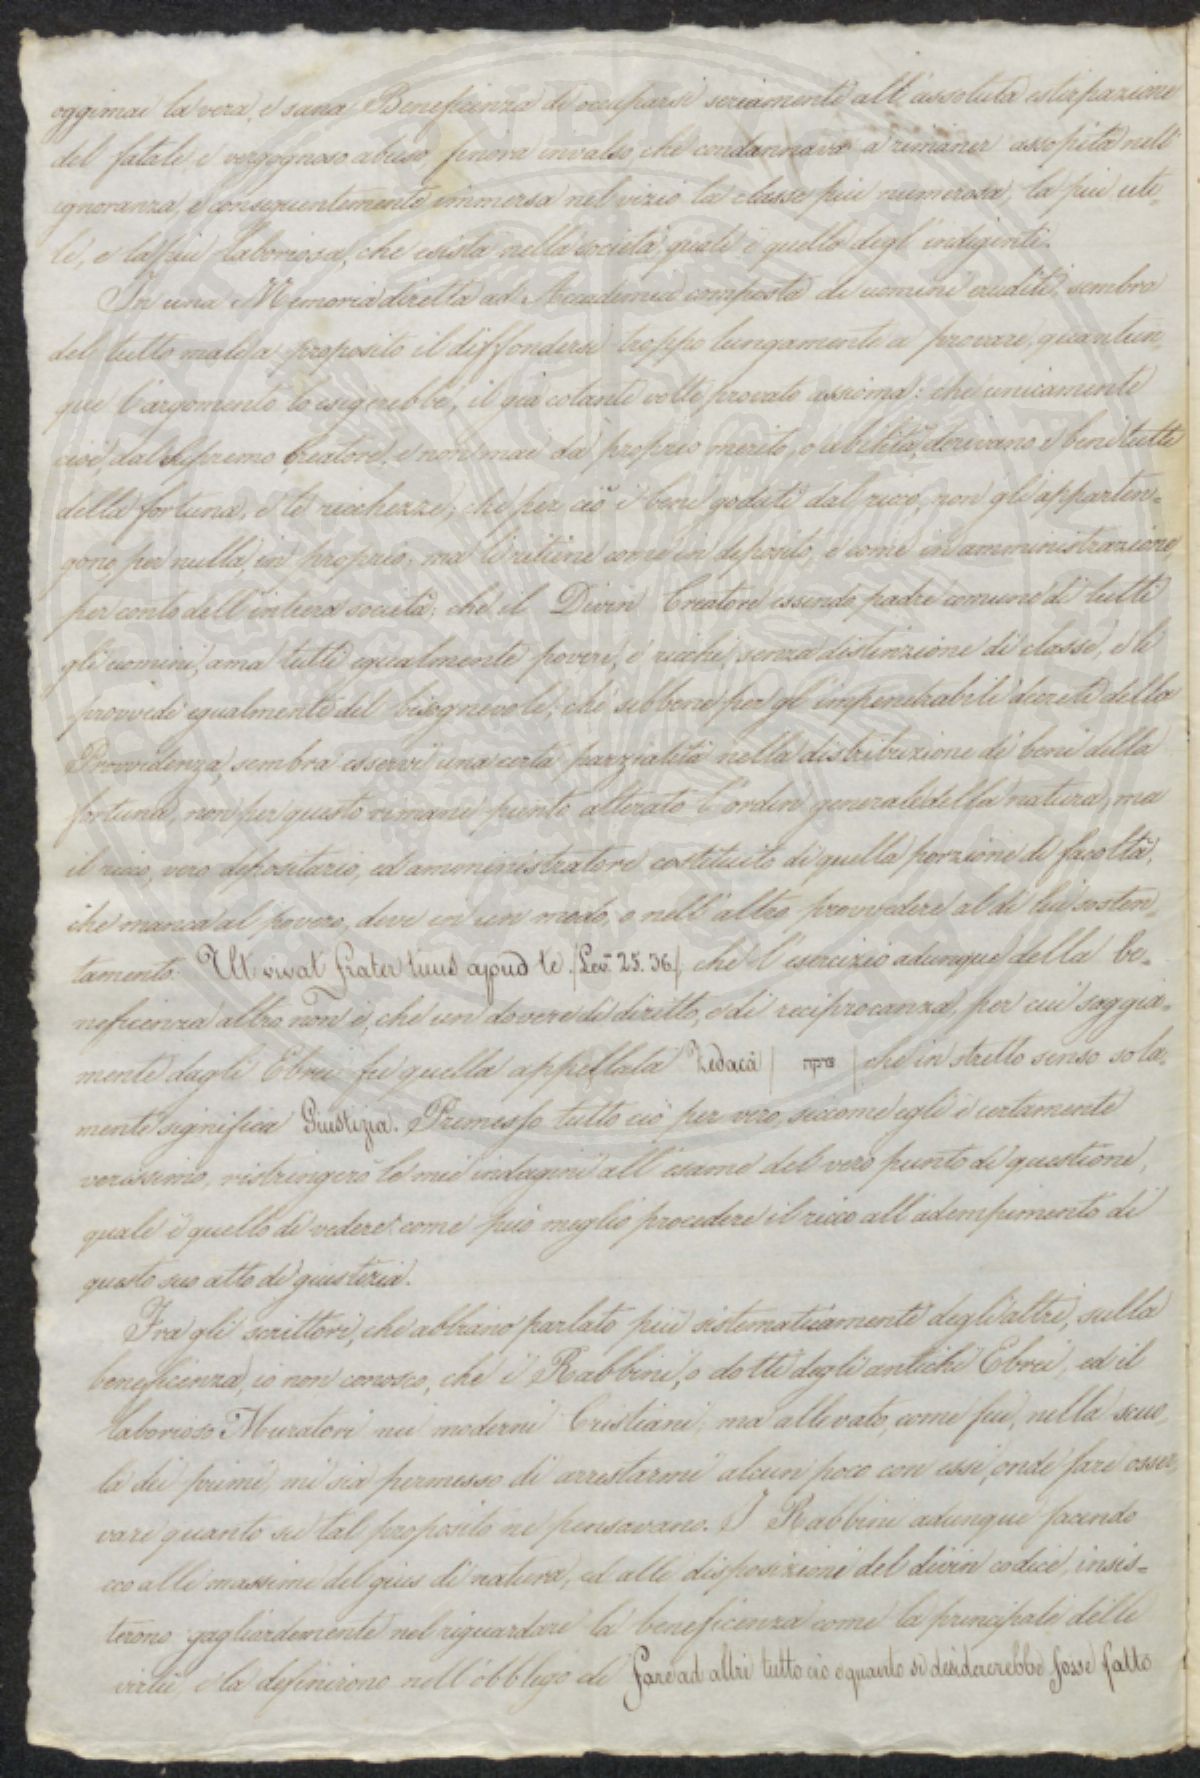 oggimai la vera, e sana Beneficenza di occuparsi seriamente all'assoluta estirpazione
del fatale, e vergognoso abuso finora invalso, che condannava a rimaner assopita nell'
ignoranza, e conseguentemente immersa nel vizio la classe più numerosa, la più uti-
le, e la più laboriosa, che esista nella società, quale è quella degl'indigenti.
In una Memoria diretta ad Accademia composta di uomini eruditi, sembra
del tutto male a proposito il diffondersi troppo lungamente a provare, quantun-
que l'argomento lo esigerebbe, il già cotante volte provato assioma: che unicamente
cioè, dal Supremo Creatore, e non mai da proprio merito, o abilità, derivano i beni tutti
della fortuna, e le ricchezze; che per ciò i beni goduti dal ricco, non gli apparten-
gono per nulla in proprio, ma li ritiene come in deposito, e come in amministrazione
per conto dell'intiera società; che il Divin Creatore essendo padre comune di tutti
gli uomini, ama tutti egualmente poveri, e ricchi, senza distinzione di classe, e li
provvede egualmente del bisognevole; che sebbene per gl'impenetrabili decreti della
Provvidenza sembra esservi una certa parzialità nella distribuzione di beni della
fortuna, non per questo rimane punto alterato l'ordin generale della natura, ma
il ricco, vero depositario, ed amministratore costituito di quella porzione di facoltà,
che manca al povero, deve in un modo, o nell'altro provvedere al di lui sosten-
tamento: Ut vivat frater tuus apud te. /Lev. 25. 36./ che l'esercizio adunque della be-
neficenza altro non è, che un dovere di diritto, e di reciprocanza, per cui saggia-
mente dagli Ebrei fu quella appellata Zedacà / צדקה / che in stretto senso sola-
mente significa Giustizia. Premesso tutto ciò per vero, siccome egli è certamente
verissimo, ristringerò le mie indagini all'esame del vero punto di questione,
quale è quello di vedere: come può meglio procedere il ricco all'adempimento di
questo suo atto di giustizia.
Fra gli scrittori, che abbiano parlato più sistematicamente degli altri, sulla
beneficenza, io non conosco, che i Rabbini, o dotti degli antichi Ebrei, ed il
laborioso Muratori nei moderni Cristiani; ma allevato, come fui, nella scuo-
la dei primi, mi sia permesso di arrestarmi alcun poco con essi, onde fare osser-
vare quanto su tal proposito ne pensavano. I Rabbini adunque facendo
eco alle massime del gius di natura, ed alle disposizioni del divin codice, insis-
terono gagliardemente nel riguardare la beneficenza come la principale delle
virtù, e la definirono nell'obbligo di fare ad altri tutto ciò e quanto si desidererebbe fosse fatto